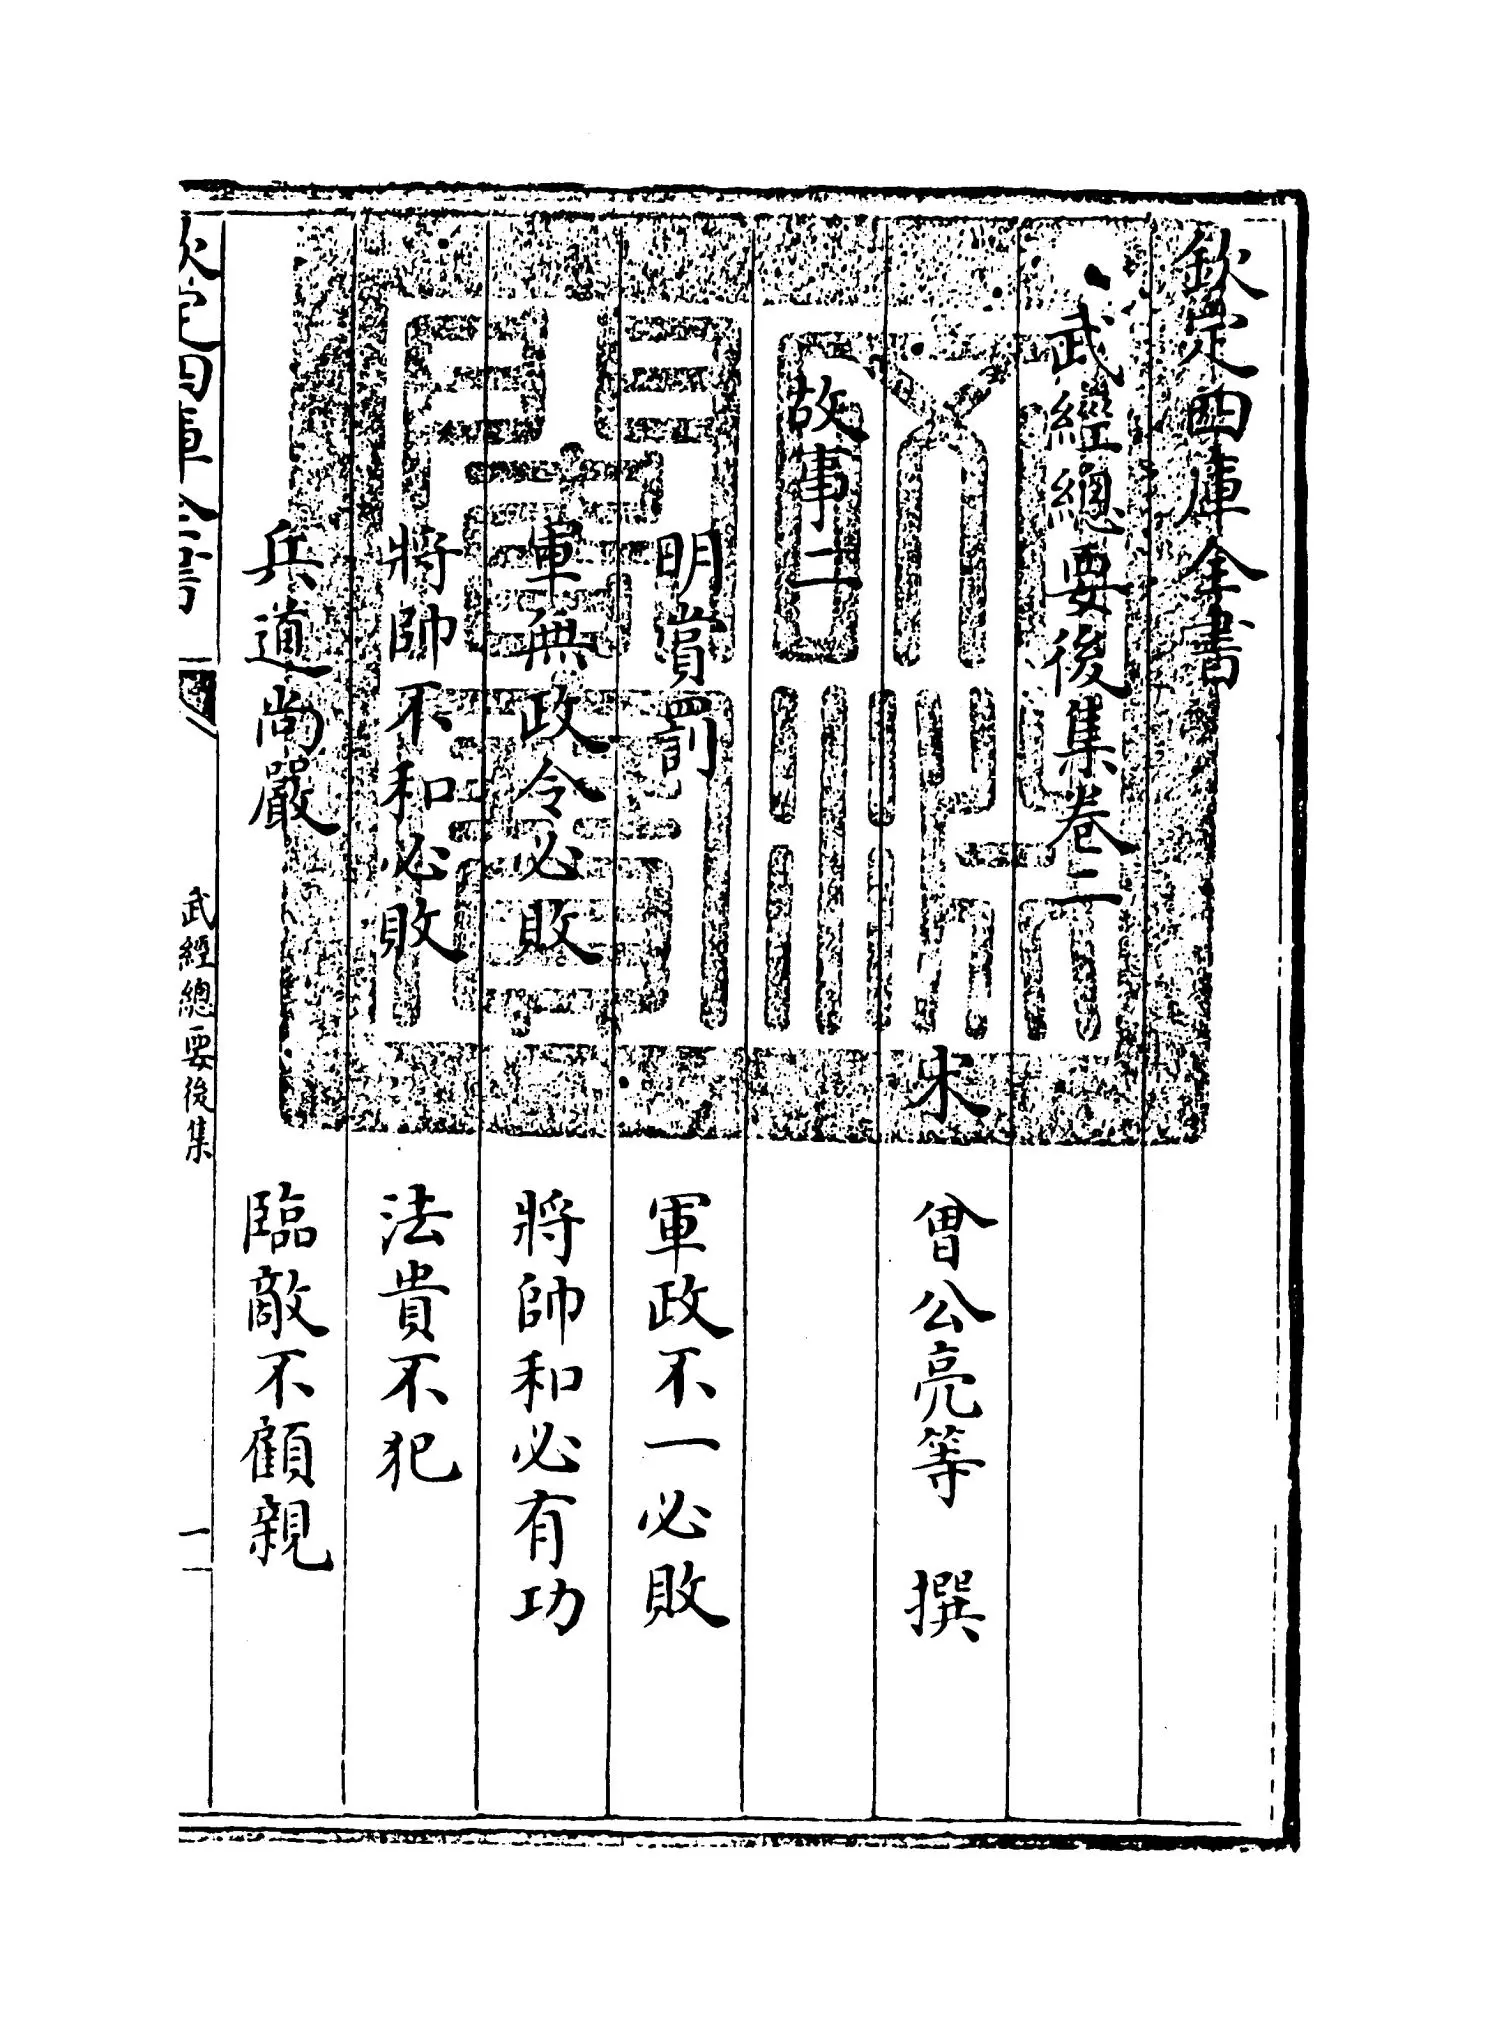 欽定四庫全書
武經總要後集卷二
宋 曾公亮等 撰
故事二
明賞罰 軍政不一必敗
軍無政令必敗 將帥和必有功
將帥不和必敗 法貴不犯
兵道尚嚴 臨敵不顧親
欽定四庫全書 武經總要後集 一